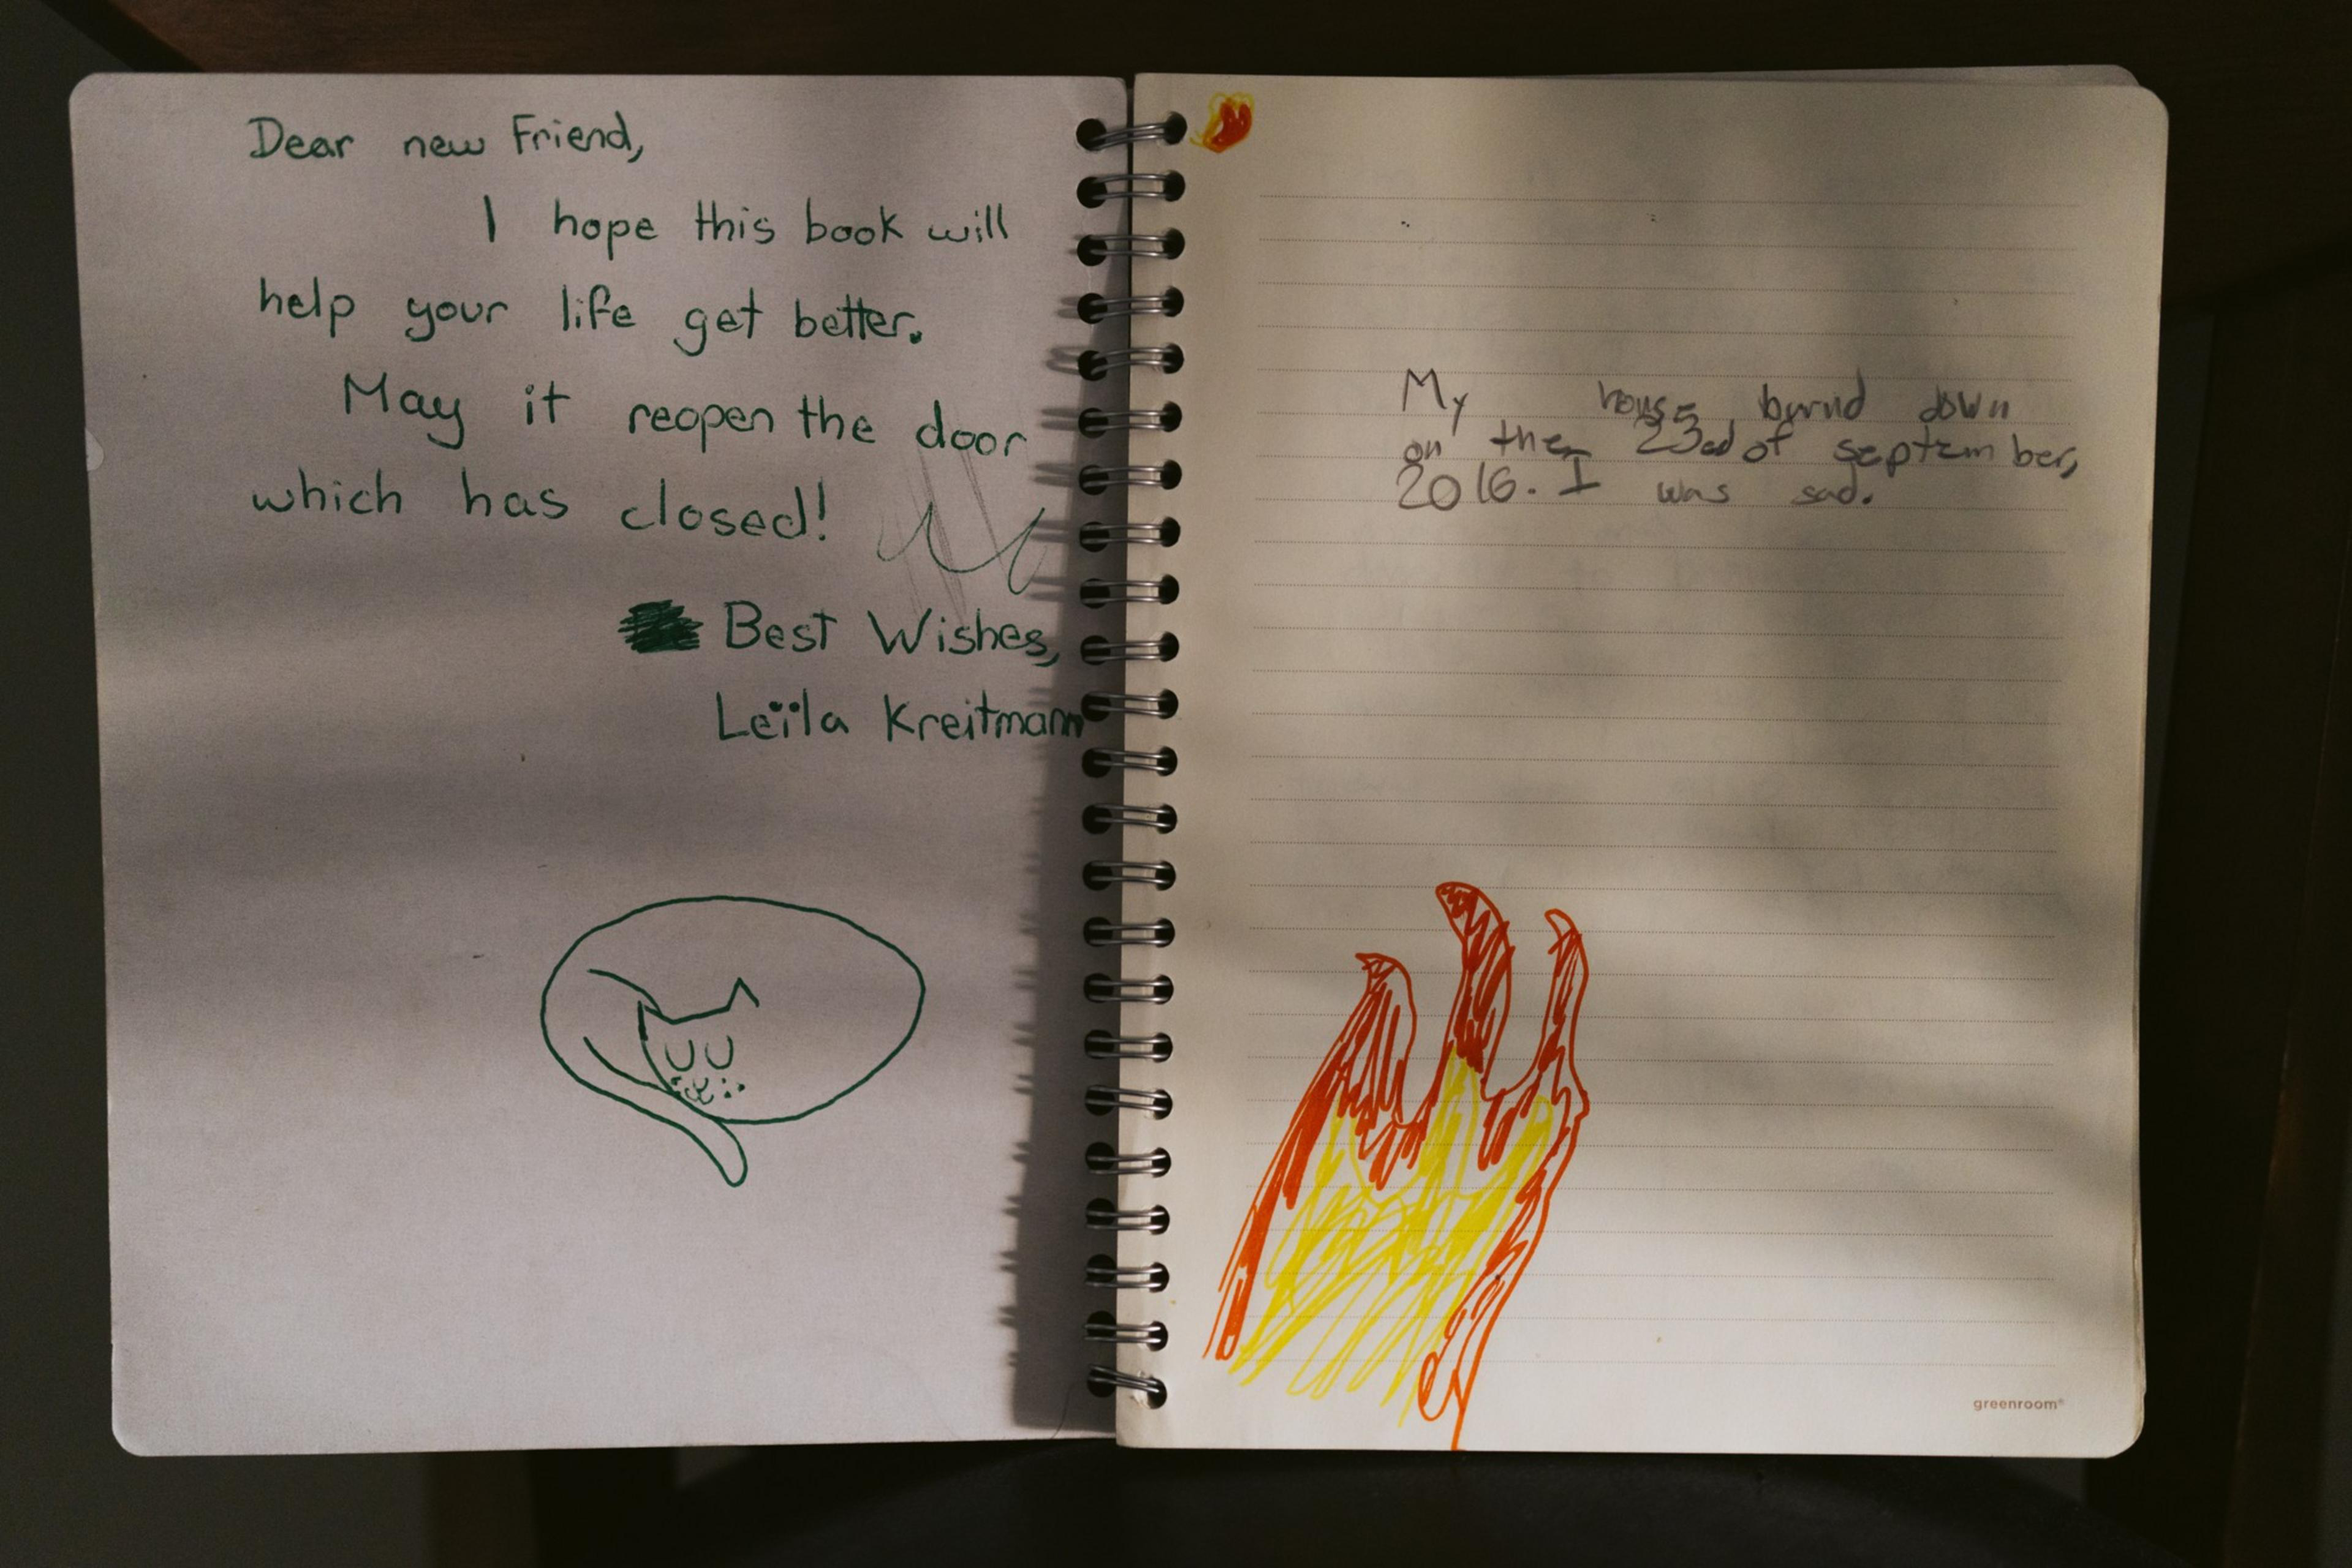 Dear new Friend,
I hope this book will
help your life get better.
May it reopen the door
which has closed!
Best Wishes,
Leïla Kreitmann
My house burnd down
on the 23ed of september,
2016. I was sad.
greenroom®